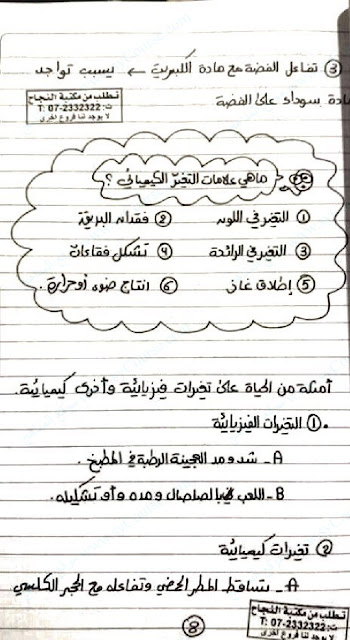 ③ تفاعل الفضة مع مادة الكبريت ← يسبب تواجد
مادة سوداء على الفضة
تطلب من مكتبة النجاح
ت: 07-2332322 :T
لا يوجد لنا فروع اخرى
ما هي علامات التغير الكيميائي ؟
① التغير في اللون ② فقدان البريق
③ التغير في الرائحة ④ تشكل فقاعات
⑤ إطلاق غاز ⑥ انتاج ضوء أو حرارة.
أمثلة من الحياة على تغيرات فيزيائية وأخرى كيميائية.
①. التغيرات الفيزيائية
A - شد ومد العجينة الرطبة في المطبخ.
B - اللعب بالصلصال ومده و أو تشكيله.
② تغيرات كيميائية
A - تساقط المطر الحمضي وتفاعله مع الحجر الكلسي
تطلب من مكتبة النجاح
ت: 07-2332322 :T
لا يوجد لنا فروع اخرى
8